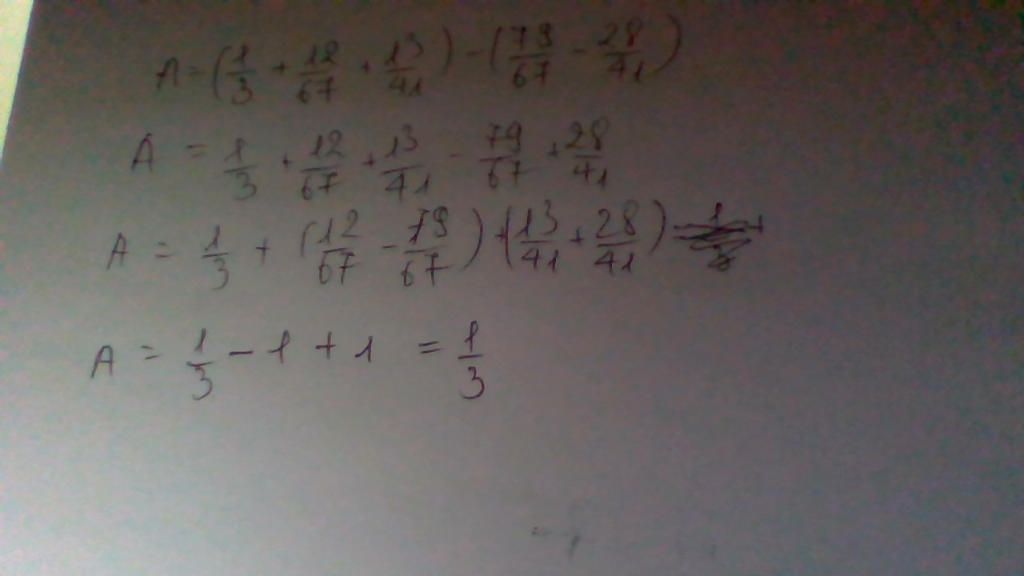 A = (1/3 + 12/67 + 13/41) - (79/67 - 28/41)
A = 1/3 + 12/67 + 13/41 - 79/67 + 28/41
A = 1/3 + (12/67 - 79/67) + (13/41 + 28/41)
A = 1/3 - 1 + 1 = 1/3